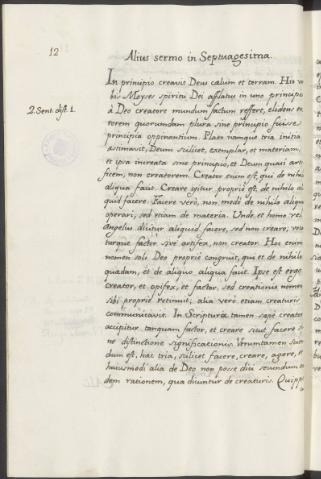 12
Alius sermo in Septuagesima.
2. Sent. dist. 1.
In principio creavit Deus cælum et terram. His ver
bis Moyses spiritu Dei afflatus in uno principio
à Deo creatore mundum factum refert, elidens er
rorem quorumdam plura sine principio fuisse
principia opinantium. Plato namque tria initia
æstimavit, Deum scilicet, exemplar, et materiam,
et ipsa increata sine principio, et Deum quasi arti
ficem, non creatorem. Creator enim est, qui de nihilo
aliqua facit. Creare igitur propriè est, de nihilo ali
quid facere. Facere verò, non modò de nihilo aliquid
operari, sed etiam de materia. Unde et homo vel
Angelus dicitur aliquid facere, sed non creare; voca
turque factor, sive artifex, non creator. Hoc enim
nomen soli Deo propriè congruit, qui et de nihilo
quædam, et de aliquo aliqua facit. Ipse est ergo
Creator, et opifex, et factor, sed creationis nomen
sibi propriè retinuit, alia verò etiam creaturis
communicavit. In Scriptura tamen sæpè creator
accipitur tanquam factor, et creare sicut facere si
ne distinctione significationis. Verumtamen scien
dum est, hæc tria, scilicet facere, creare, agere, et
huiusmodi alia de Deo non posse dici secundum ean
dem rationem, qua dicuntur de creaturis. Quippe